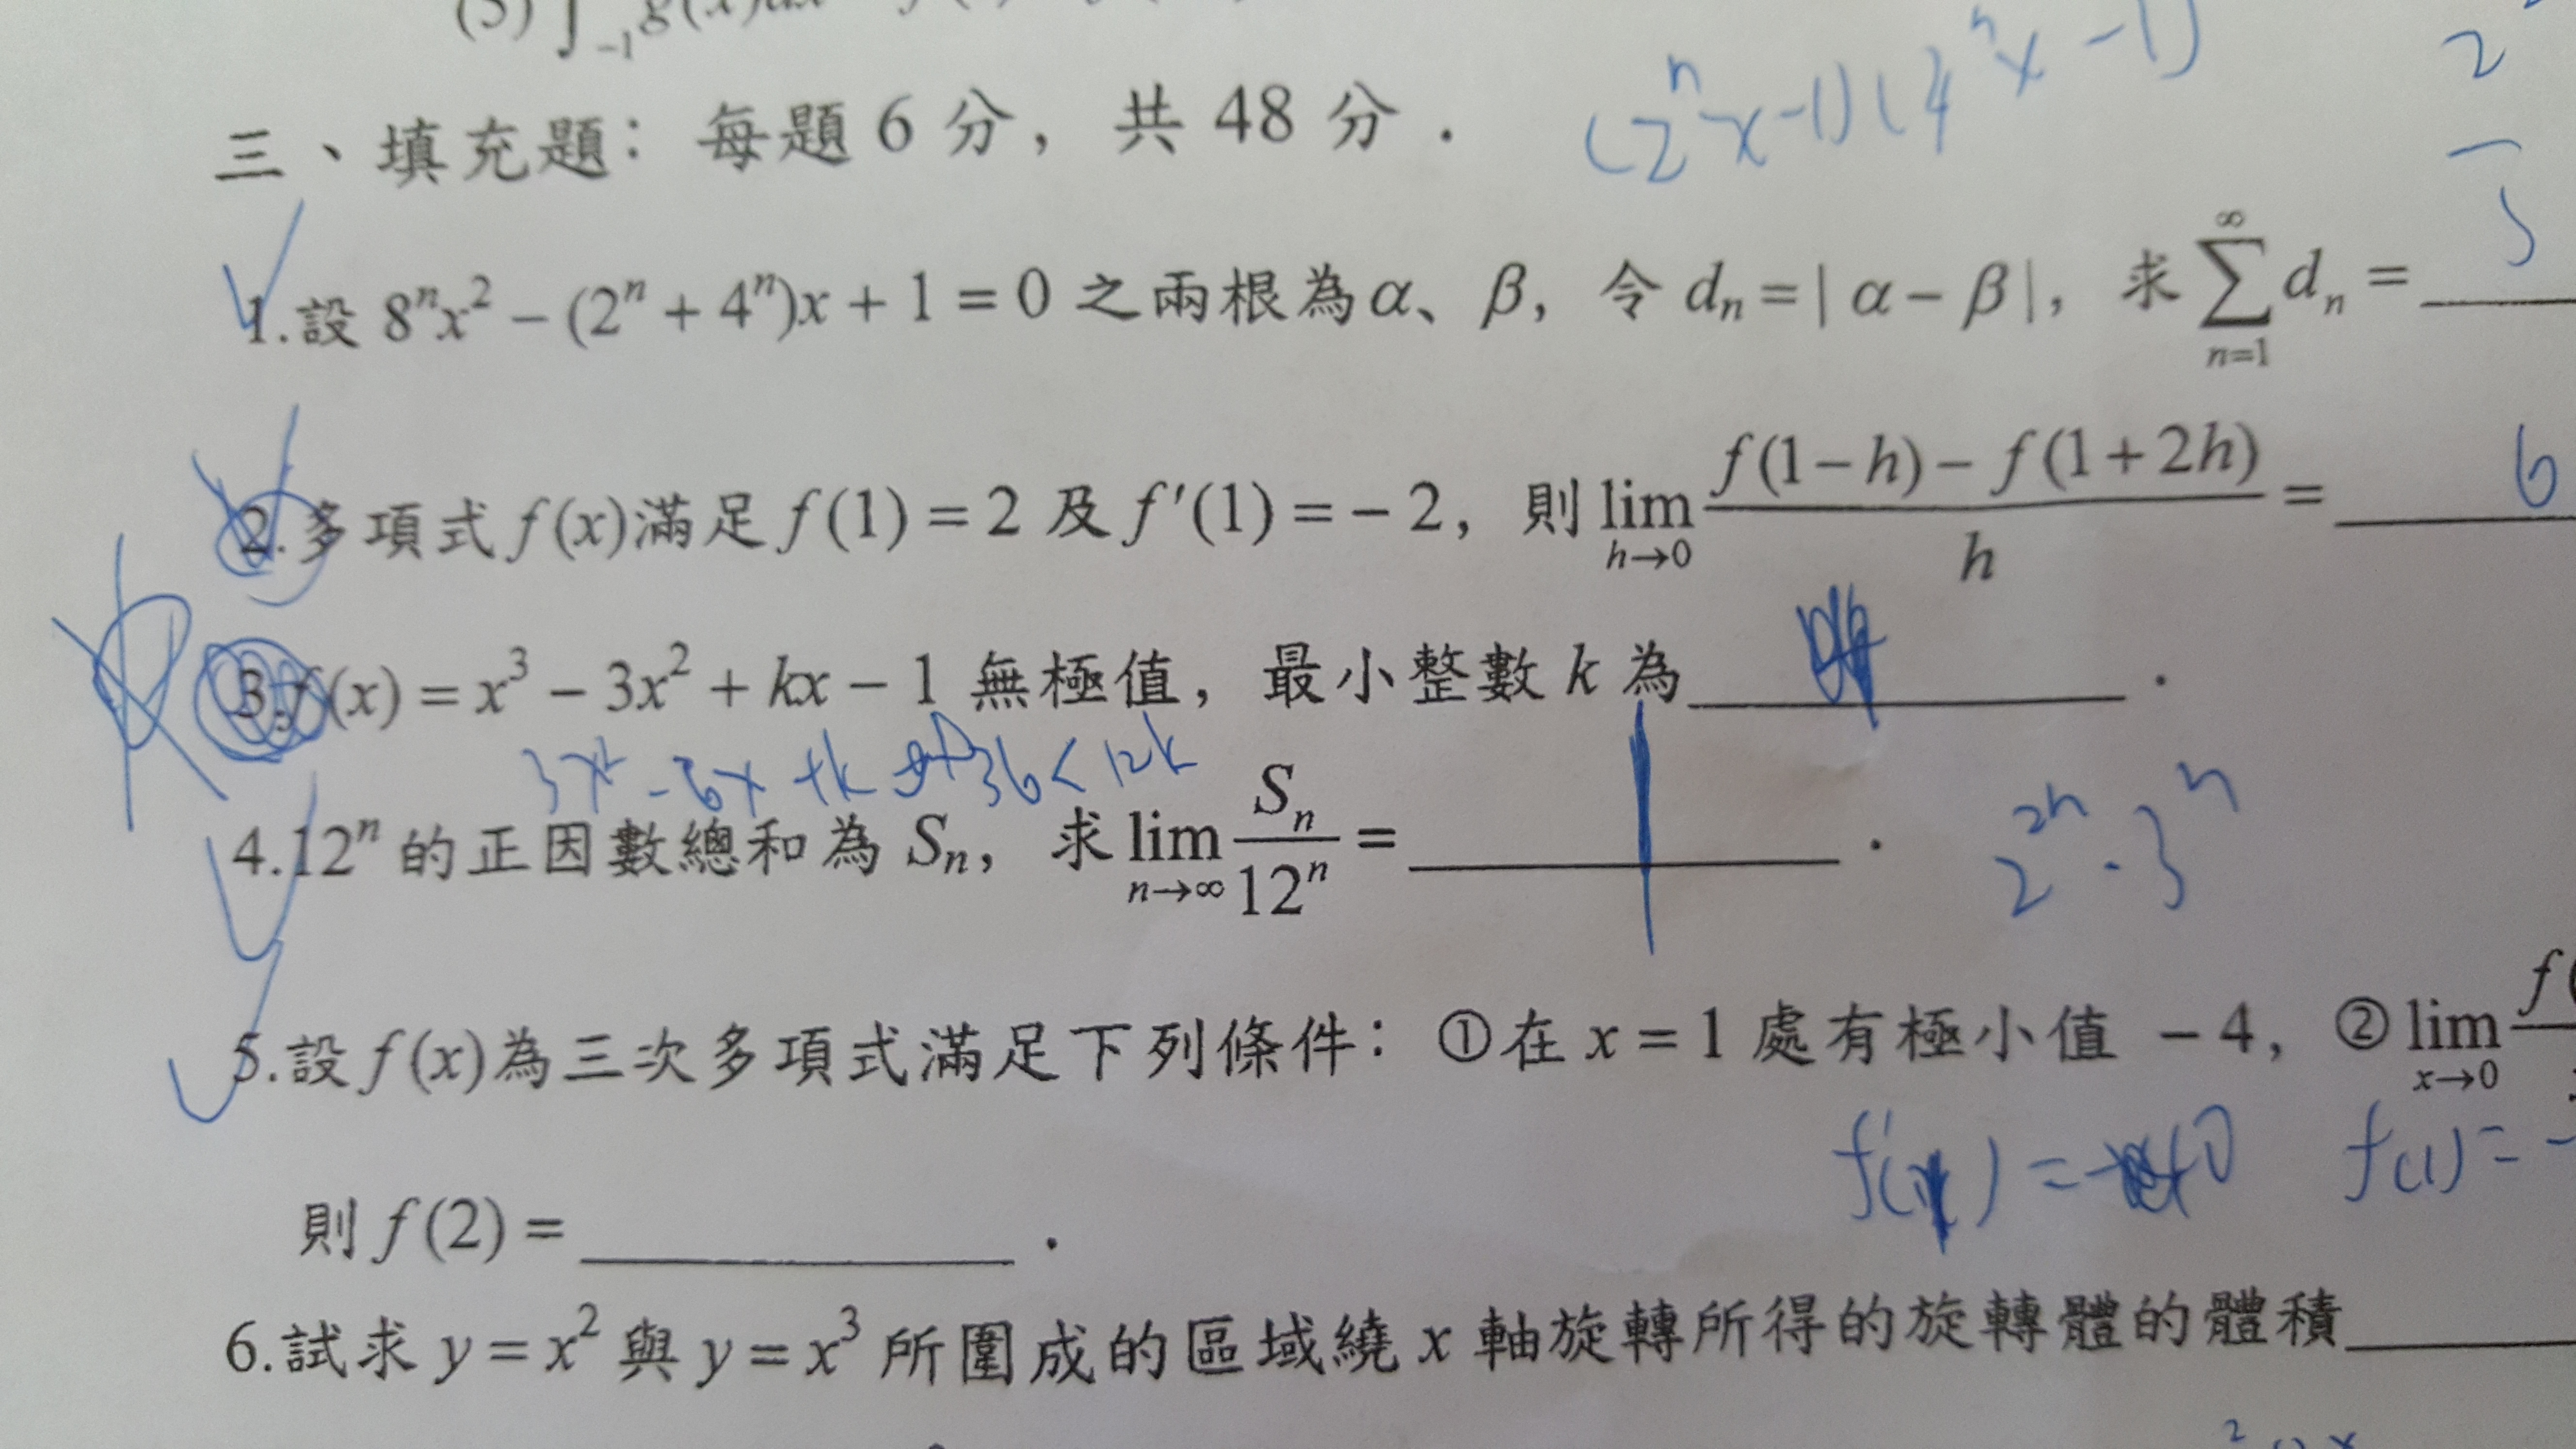 三、填充題：每題 6 分，共 48 分．
(2ⁿx-1)(4ⁿx-1)
1.設 8ⁿx² − (2ⁿ + 4ⁿ)x + 1 = 0 之兩根為α、β，令 dₙ = | α − β |，求 ∑_{n=1}^{∞} dₙ =
2.多項式 f(x)滿足 f(1) = 2 及 f′(1) = − 2，則 lim_{h→0} (f(1−h) − f(1+2h))/h = 6
3.f(x) = x³ − 3x² + kx − 1 無極值，最小整數 k 為______．
3x² - 6x + k 36 < 12k
4.12ⁿ 的正因數總和為 Sₙ，求 lim_{n→∞} Sₙ/12ⁿ = ______．
2²ⁿ · 3ⁿ
5.設 f(x)為三次多項式滿足下列條件：①在 x = 1 處有極小值 − 4，② lim_{x→0} f(
f(1) = -
則 f(2) = ______．
6.試求 y = x² 與 y = x³ 所圍成的區域繞 x 軸旋轉所得的旋轉體的體積______